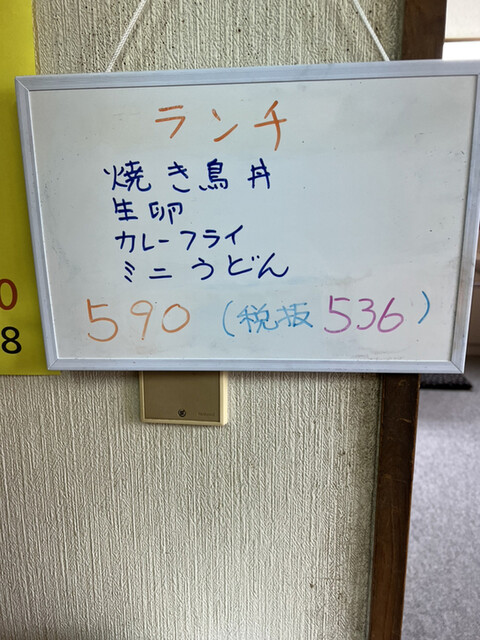 ランチ
焼き鳥丼
生卵
カレーフライ
ミニうどん
590 (税抜 536)
0
8